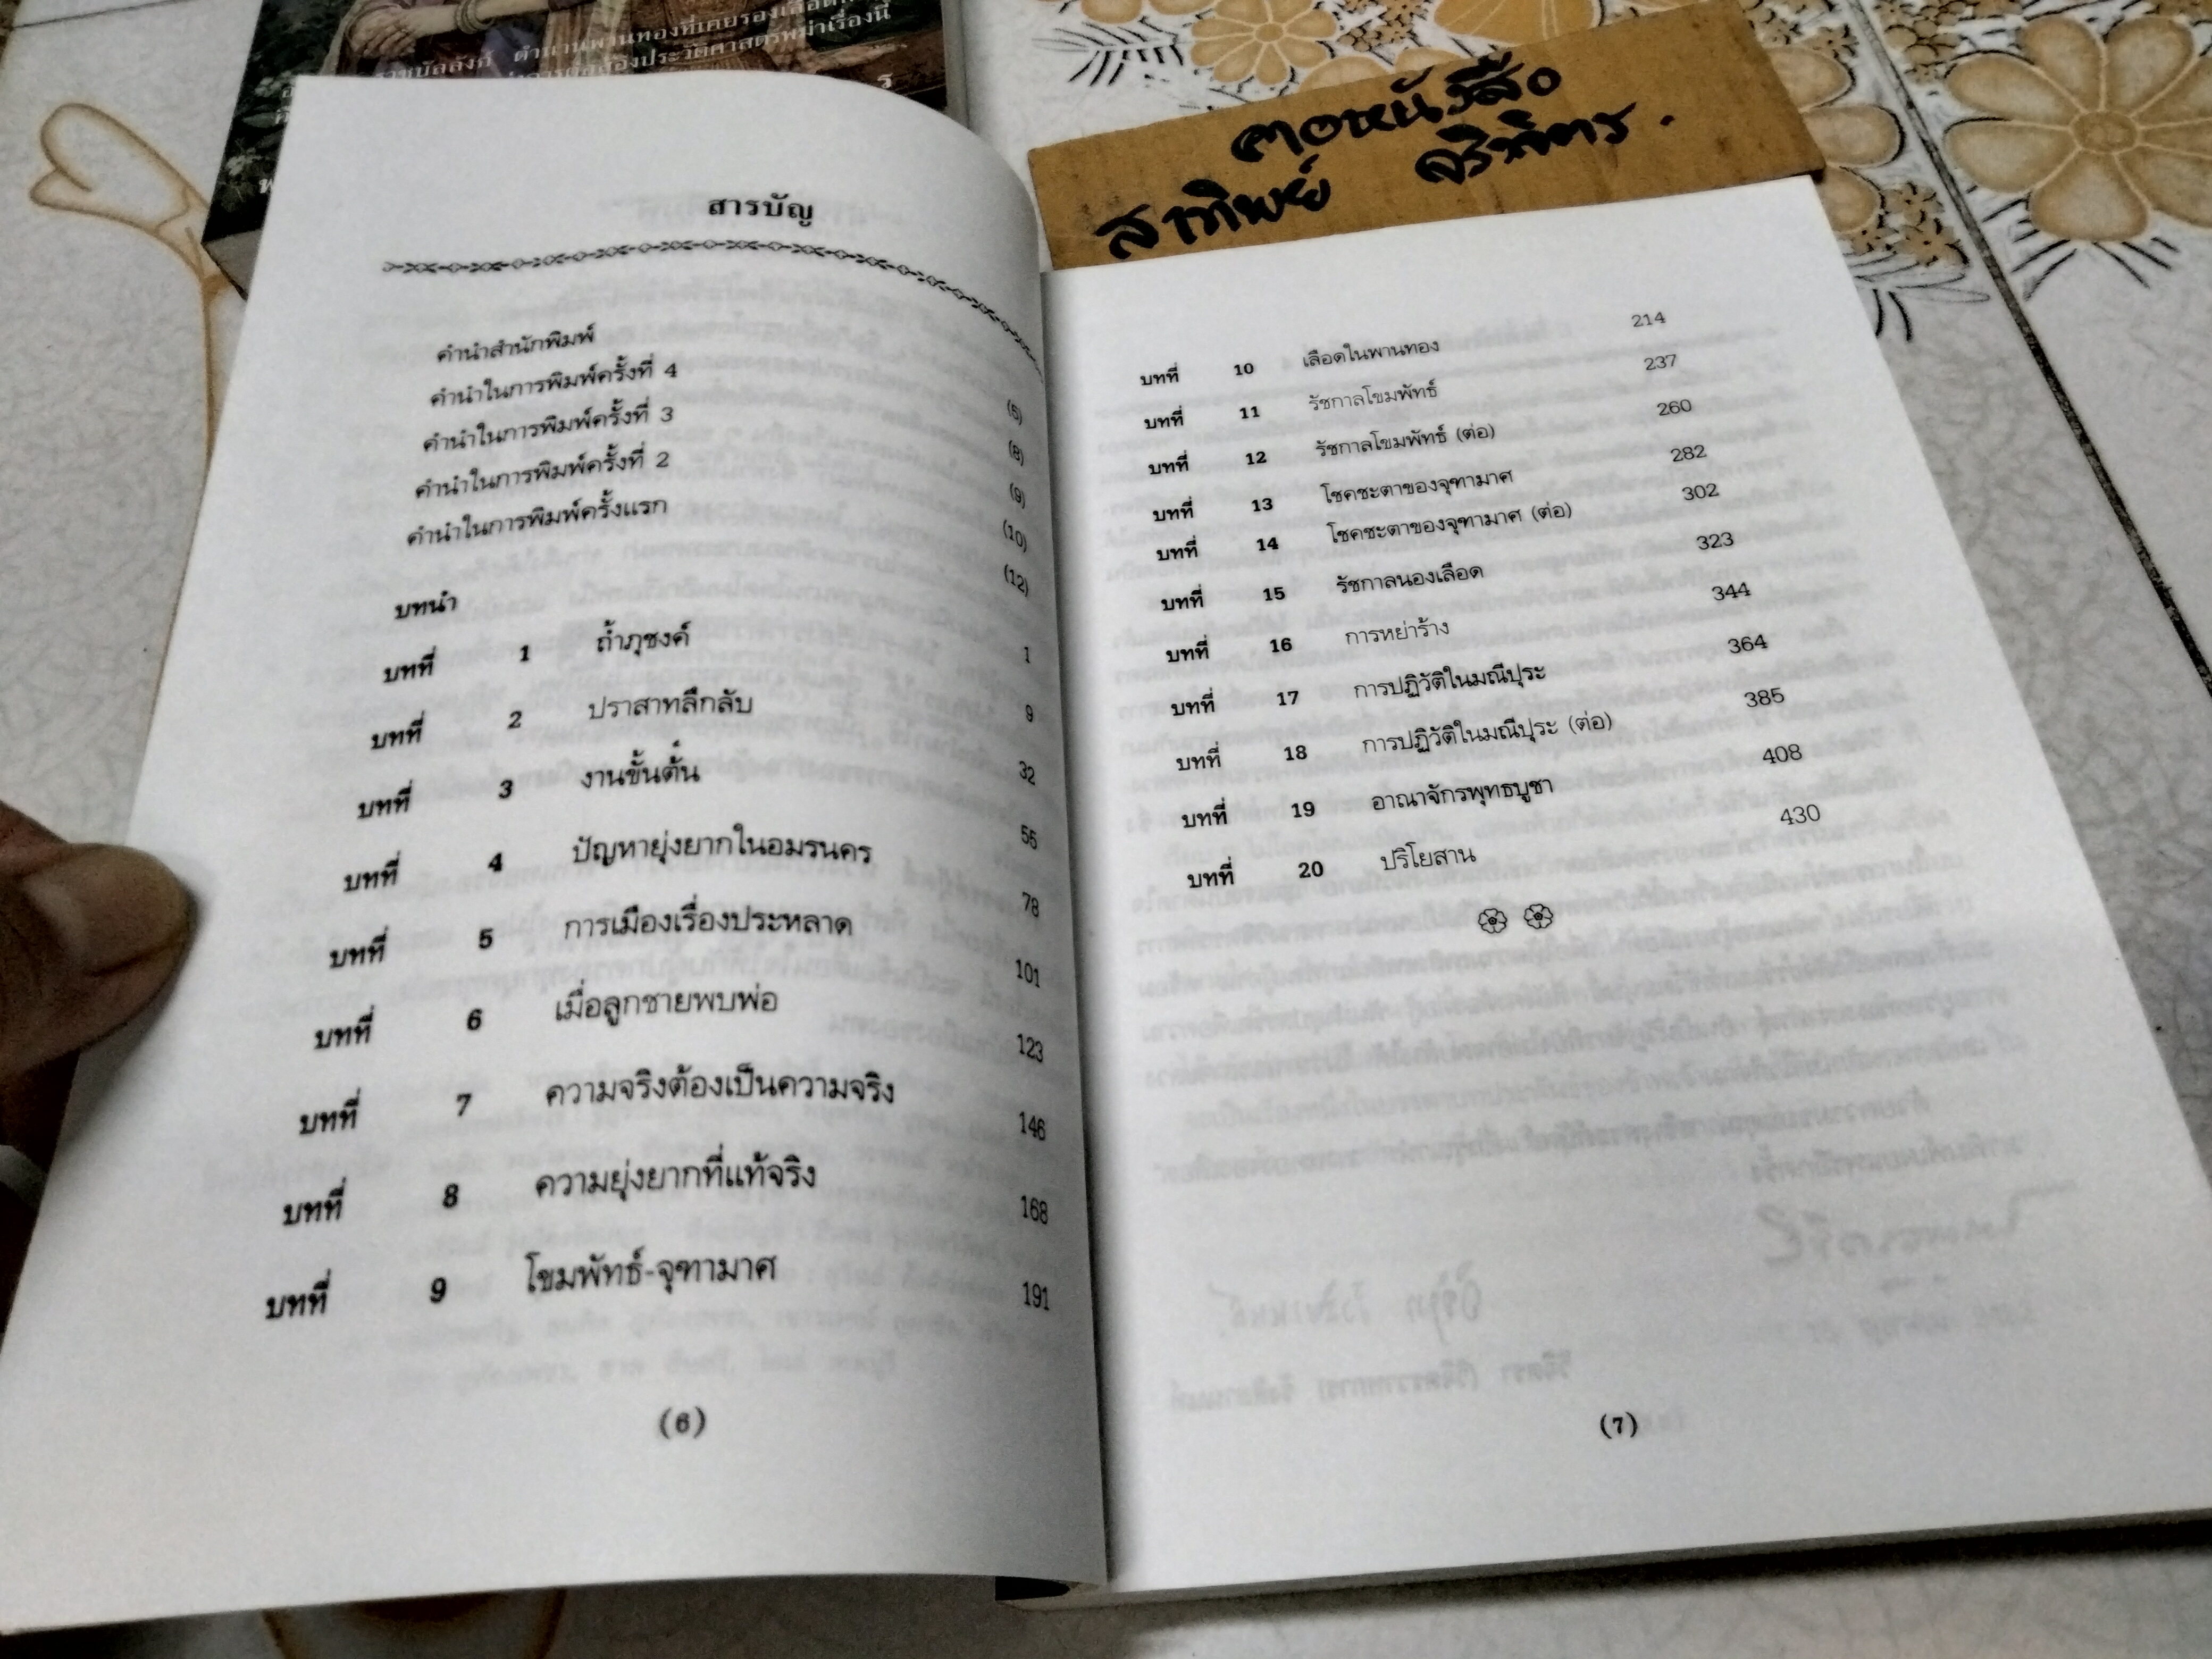 ราชบัลลังก์ ตำนานพานทองที่เคยรองเลือด
ประวัติศาสตร์พม่าเรื่องนี้
คอหนังสือ
สาทิพย์ จริพัตร.
สารบัญ
คำนำสำนักพิมพ์ (5)
คำนำในการพิมพ์ครั้งที่ 4 (8)
คำนำในการพิมพ์ครั้งที่ 3 (9)
คำนำในการพิมพ์ครั้งที่ 2 (10)
คำนำในการพิมพ์ครั้งแรก (12)
บทนำ 1
บทที่ 1 ถ้ำภุชงค์ 9
บทที่ 2 ปราสาทลึกลับ 32
บทที่ 3 งานขั้นต้น 55
บทที่ 4 ปัญหายุ่งยากในอมรนคร 78
บทที่ 5 การเมืองเรื่องประหลาด 101
บทที่ 6 เมื่อลูกชายพบพ่อ 123
บทที่ 7 ความจริงต้องเป็นความจริง 146
บทที่ 8 ความยุ่งยากที่แท้จริง 168
บทที่ 9 โขมพัทธ์-จุฑามาศ 191
(6)
บทที่ 10 เลือดในพานทอง 214
บทที่ 11 รัชกาลโขมพัทธ์ 237
บทที่ 12 รัชกาลโขมพัทธ์ (ต่อ) 260
บทที่ 13 โชคชะตาของจุฑามาศ 282
บทที่ 14 โชคชะตาของจุฑามาศ (ต่อ) 302
บทที่ 15 รัชกาลนองเลือด 323
บทที่ 16 การหย่าร้าง 344
บทที่ 17 การปฏิวัติในมณีปุระ 364
บทที่ 18 การปฏิวัติในมณีปุระ (ต่อ) 385
บทที่ 19 อาณาจักรพุทธบูชา 408
บทที่ 20 ปริโยสาน 430
(7)